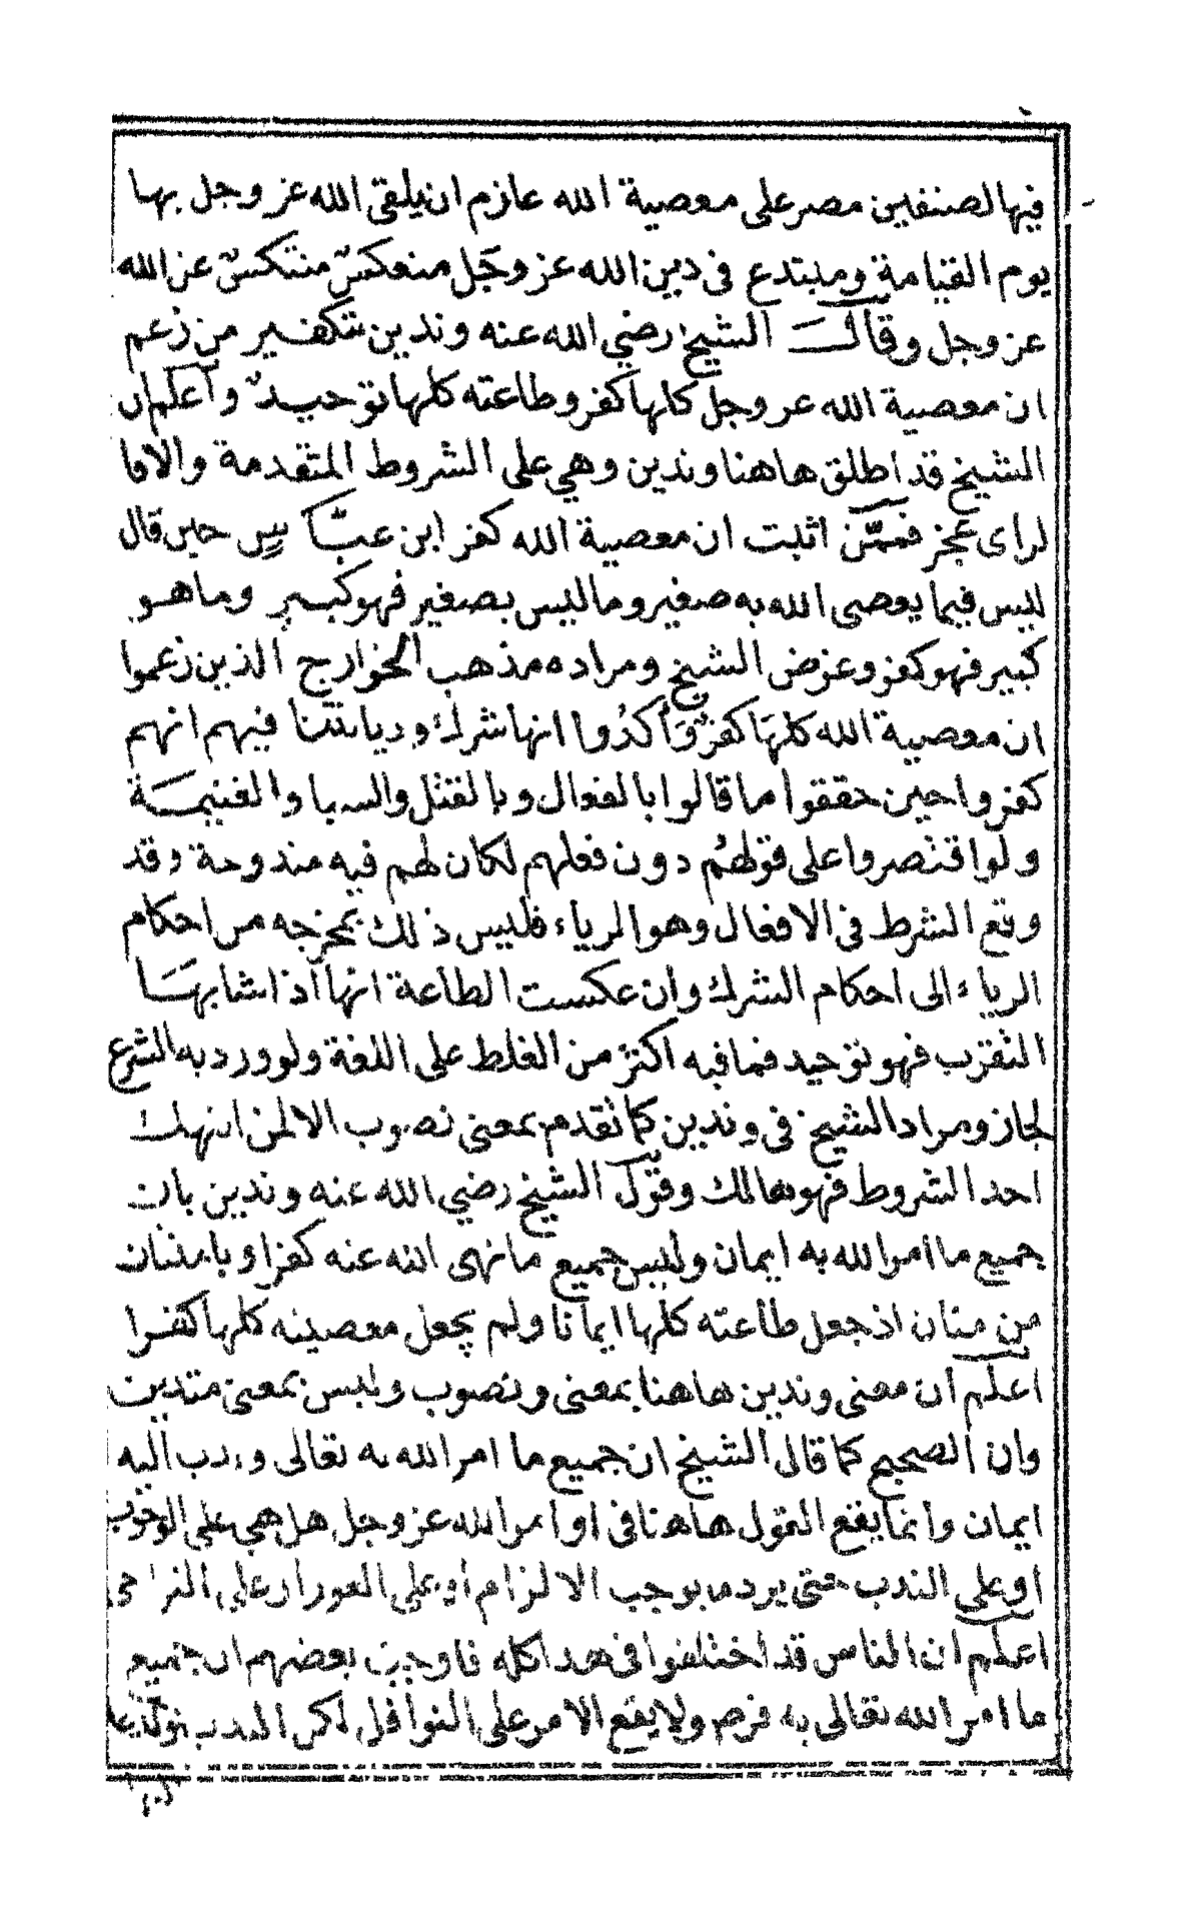 فيها لصنفين مصر على معصية الله عازم ان يلقى الله عز وجل بها
يوم القيامة ومبتدع فى دين الله عز وجل منعكس منتكس عن الله
عز وجل وقال الشيخ رضي الله عنه وندين بتكفير من زعم
ان معصية الله عز وجل كلها كفر وطاعته كلها توحيد واعلم ان
الشيخ قد اطلق هاهنا وندين وهي على الشروط المتقدمة والافا
لراى عجز فممن اثبت ان معصية الله كفر ابن عباس حين قال
ليس فيما يعصى الله به صغير وما ليس بصغير فهو كبير وما هو
كبير فهو كفر وعرض الشيخ ومراده مذهب الخوارج الذين زعموا
ان معصية الله كلها كفر وأكدوا انها شرك وديانتنا فيهم انهم
كفروا حين حققوا ما قالوا بالفعال وبالقتل والسبا والغنيمة
ولو اقتصروا على قولهم دون فعلهم لكان لهم فيه مندوحة وقد
وقع الشرط فى الافعال وهو الرياء فليس ذلك بمخرجه من احكام
الرياء الى احكام الشرك وان عكست الطاعة انها اذا شابها
التقرب فهو توحيد فما فيه اكثر من الغلط على اللغة ولو ورد به الشرع
لجاز ومراد الشيخ فى وندين كما تقدم بمعنى نصوب الا لمن انتهك
احد الشروط فهو هالك وقول الشيخ رضي الله عنه وندين بان
جميع ما امر الله به ايمان وليس جميع ما نهى الله عنه كفرا وبامتنان
من منان اذ جعل طاعته كلها ايمانا ولم يجعل معصيته كلها كفرا
اعلم ان معنى وندين هاهنا بمعنى ونصوب وليس بمعنى متدين
وان الصحيح كما قال الشيخ ان جميع ما امر الله به تعالى وندب اليه
ايمان وانما يقع القول هاهنا فى اوامر الله عز وجل هل هي على الوجوب
او على الندب حتى يرد ما يوجب الالزام او على الفور او على التراخى
اعلم ان الناس قد اختلفوا فى هذا كله فاوجب بعضهم ان جميع
ما امر الله تعالى به فرض ولا يقع الامر على النوافل لكن الندب